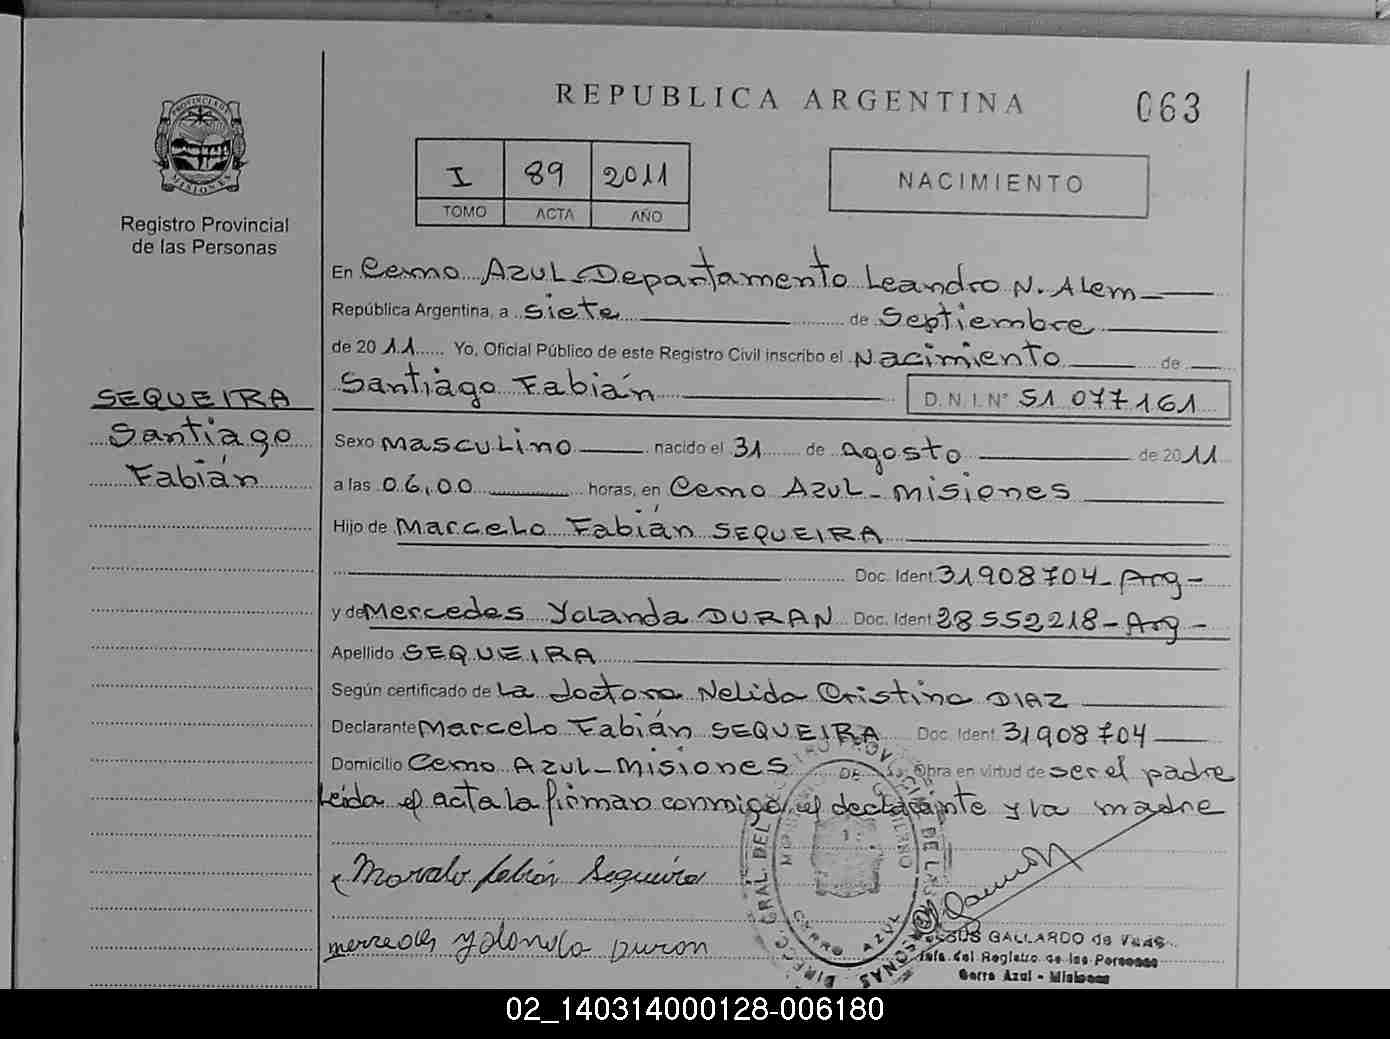 REPUBLICA ARGENTINA
063
PROVINCIA DE
MISIONES
Registro Provincial
de las Personas
I 89 2011
TOMO ACTA AÑO
NACIMIENTO
En Cerro Azul - Departamento Leandro N. Alem
República Argentina, a siete de Septiembre
de 2011 Yo, Oficial Público de este Registro Civil inscribo el Nacimiento de
Santiago Fabián D.N.I.N° 51 077161
SEQUEIRA
Santiago
Fabián
Sexo Masculino nacido el 31 de agosto de 2011
a las 06,00 horas, en Cerro Azul - Misiones
Hijo de Marcelo Fabián SEQUEIRA
Doc. Ident. 31908704 - Arg -
y de Mercedes Yolanda DURAN Doc. Ident. 28552218 - Arg -
Apellido SEQUEIRA
Según certificado de La doctora Nelida Cristina DIAZ
Declarante Marcelo Fabián SEQUEIRA Doc. Ident. 31908704
Domicilio Cerro Azul - Misiones Obra en virtud de ser el padre
Leída el acta la firman conmigo el declarante y la madre
Marcelo fabián Sequeira
mercedes yolanda Duran
CERRO AZUL
GALLARDO de
Jefa del Registro de las Personas
Cerro Azul - Misiones
02_140314000128-006180